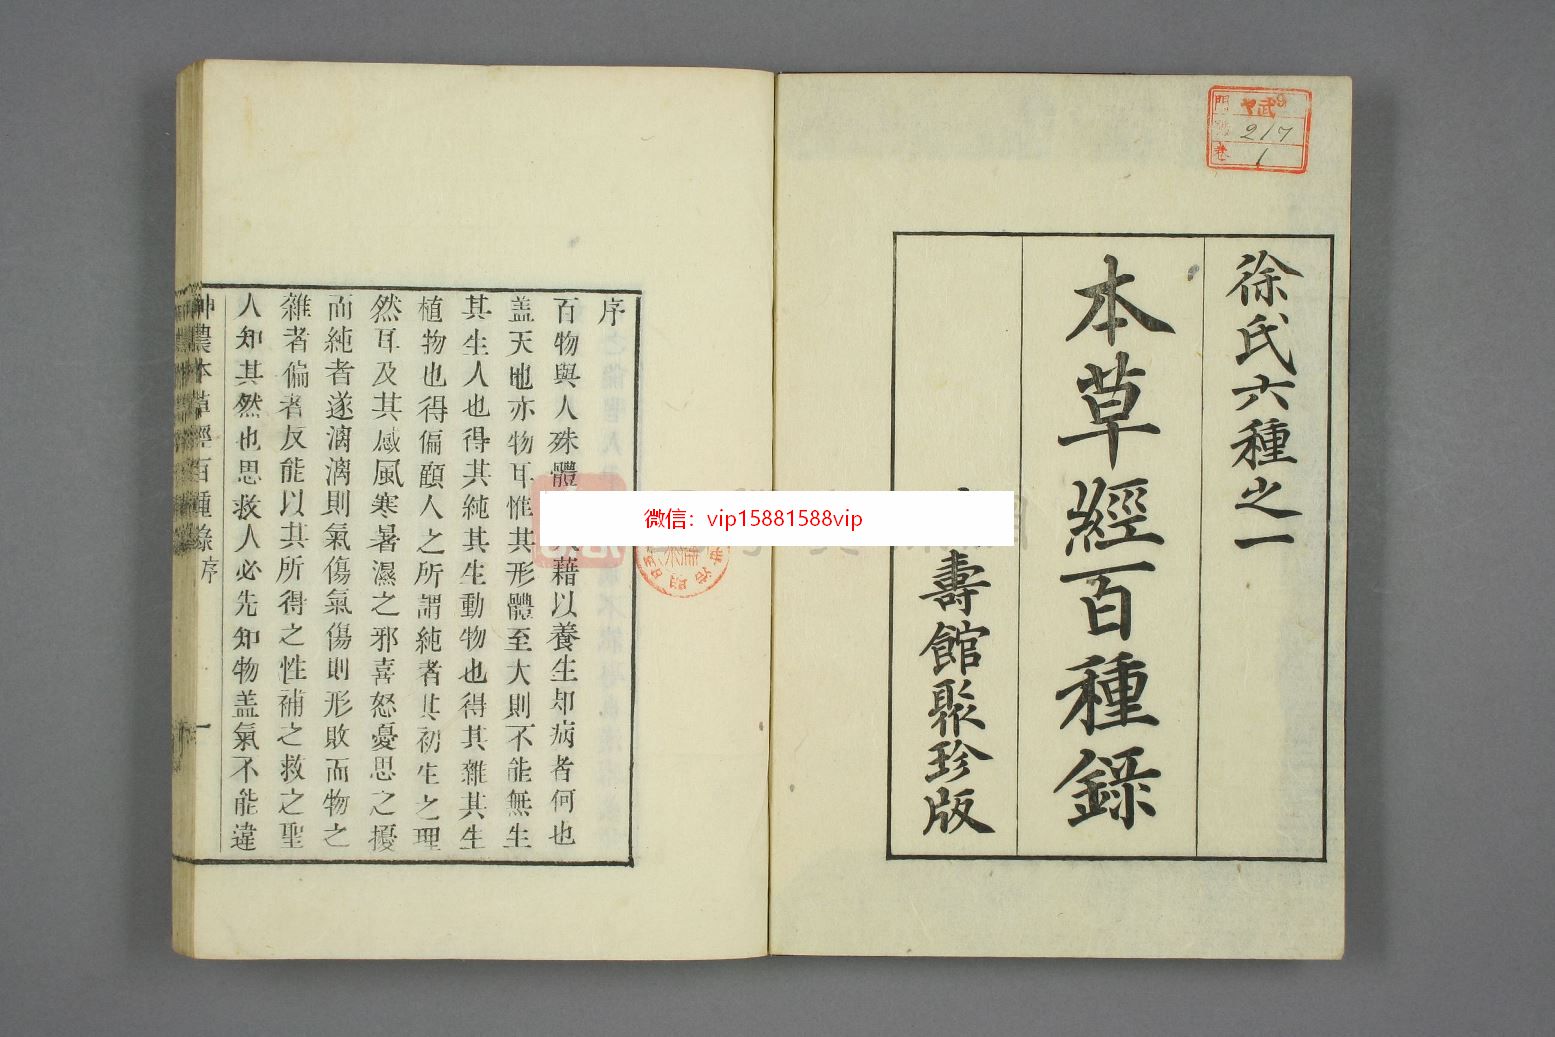 徐氏六種之一
本草經百種錄
壽館聚珍版
門 武 9
號 217
卷 1
微信：vip15881588vip
序
百物與人殊體 藉以養生却病者何也
盖天地亦物耳惟其形體至大則不能無生
其生人也得其純其生動物也得其雜其生
植物也得偏顧人之所謂純者其初生之理
然耳及其感風寒暑濕之邪喜怒憂思之擾
而純者遂漓漓則氣傷氣傷則形敗而物之
雜者偏者反能以其所得之性補之救之聖
人知其然也思救人必先知物盖氣不能違
神農本草經百種錄序
一